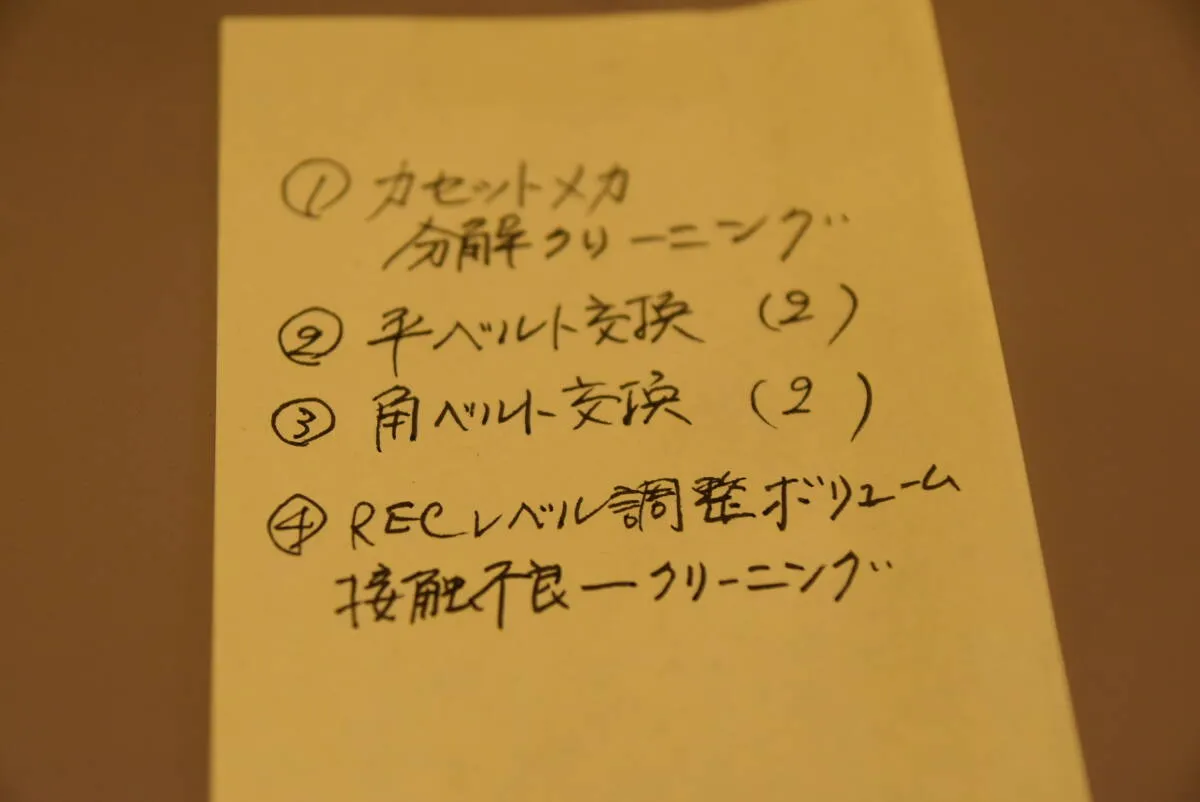 ① カセットメカ
分解クリーニング
② 平ベルト交換 (2)
③ 角ベルト交換 (2)
④ RECレベル調整ボリューム
接触不良ークリーニング